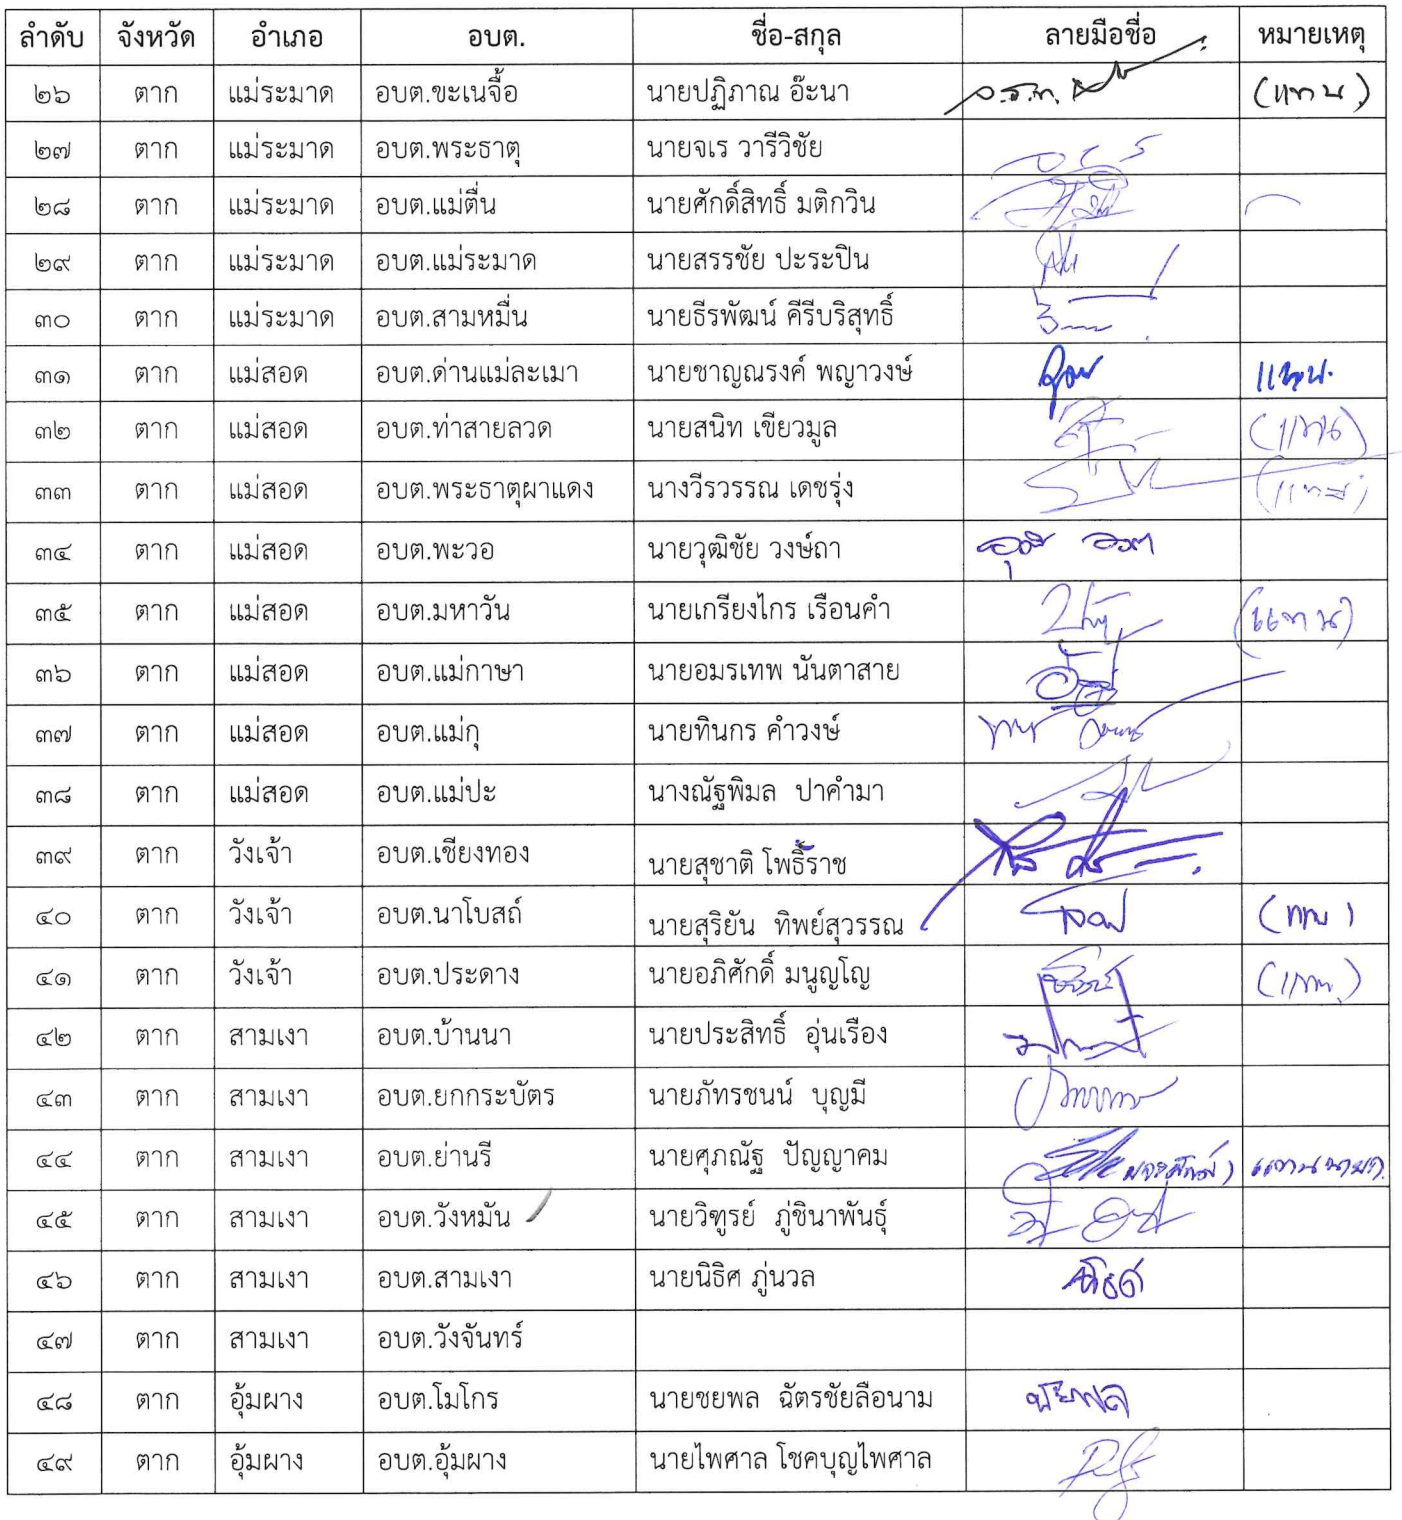 ลำดับ จังหวัด อำเภอ อบต. ชื่อ-สกุล ลายมือชื่อ หมายเหตุ
๒๖ ตาก แม่ระมาด อบต.ขะเนจื้อ นายปฏิภาณ อ๊ะนา (แทน)
๒๗ ตาก แม่ระมาด อบต.พระธาตุ นายจเร วารีวิชัย
๒๘ ตาก แม่ระมาด อบต.แม่ตื่น นายศักดิ์สิทธิ์ มติกวิน
๒๙ ตาก แม่ระมาด อบต.แม่ระมาด นายสรรชัย ปะระปิน
๓๐ ตาก แม่ระมาด อบต.สามหมื่น นายธีรพัฒน์ คีรีบริสุทธิ์
๓๑ ตาก แม่สอด อบต.ด่านแม่ละเมา นายชาญณรงค์ พญาวงษ์ แทน.
๓๒ ตาก แม่สอด อบต.ท่าสายลวด นายสนิท เขียวมูล (แทน)
๓๓ ตาก แม่สอด อบต.พระธาตุผาแดง นางวีรวรรณ เดชรุ่ง (แทน)
๓๔ ตาก แม่สอด อบต.พะวอ นายวุฒิชัย วงษ์ถา
๓๕ ตาก แม่สอด อบต.มหาวัน นายเกรียงไกร เรือนคำ (แทน)
๓๖ ตาก แม่สอด อบต.แม่กาษา นายอมรเทพ นันตาสาย
๓๗ ตาก แม่สอด อบต.แม่กุ นายทินกร คำวงษ์
๓๘ ตาก แม่สอด อบต.แม่ปะ นางณัฐพิมล ปาคำมา
๓๙ ตาก วังเจ้า อบต.เชียงทอง นายสุชาติ โพธิ์ราช
๔๐ ตาก วังเจ้า อบต.นาโบสถ์ นายสุริยัน ทิพย์สุวรรณ (แทน)
๔๑ ตาก วังเจ้า อบต.ประดาง นายอภิศักดิ์ มนูญโญ (แทน)
๔๒ ตาก สามเงา อบต.บ้านนา นายประสิทธิ์ อุ่นเรือง
๔๓ ตาก สามเงา อบต.ยกกระบัตร นายภัทรชนน์ บุญมี
๔๔ ตาก สามเงา อบต.ย่านรี นายศุภณัฐ ปัญญาคม แทนนายก
๔๕ ตาก สามเงา อบต.วังหมัน นายวิฑูรย์ ภู่ชินาพันธุ์
๔๖ ตาก สามเงา อบต.สามเงา นายนิธิศ ภู่นวล
๔๗ ตาก สามเงา อบต.วังจันทร์
๔๘ ตาก อุ้มผาง อบต.โมโกร นายชยพล ฉัตรชัยลือนาม ชัยพล
๔๙ ตาก อุ้มผาง อบต.อุ้มผาง นายไพศาล โชคบุญไพศาล